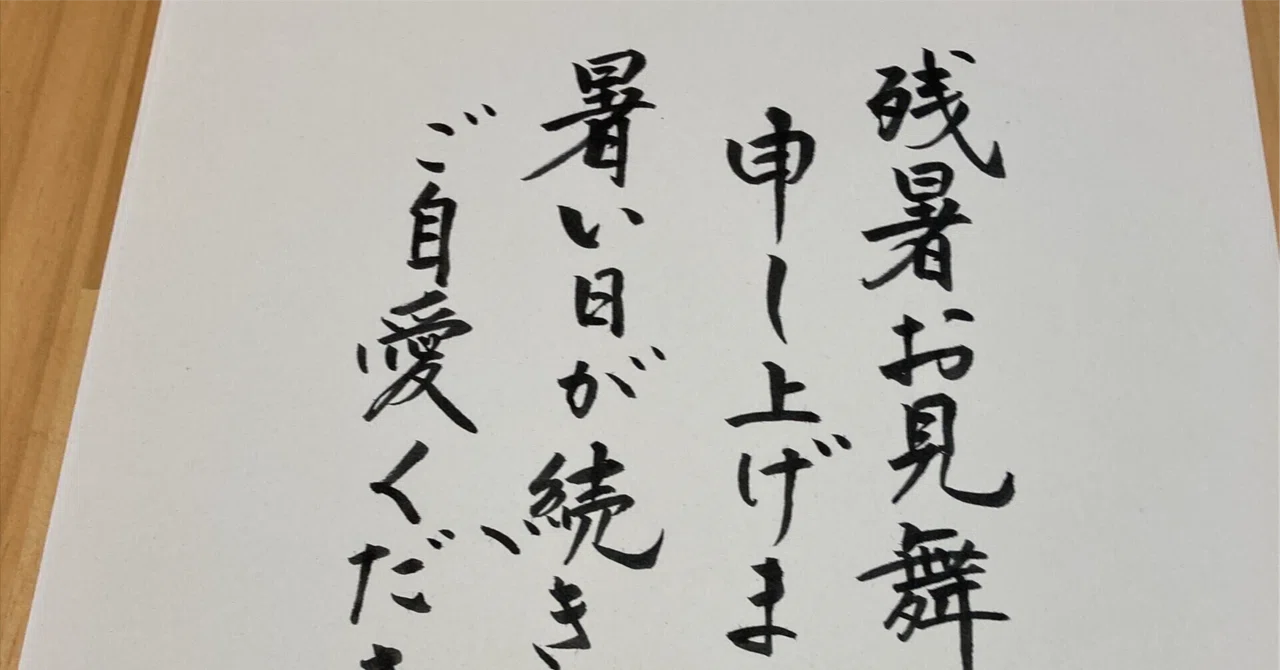 残暑お見舞
申し上げま
暑い日が続き
ご自愛くだ